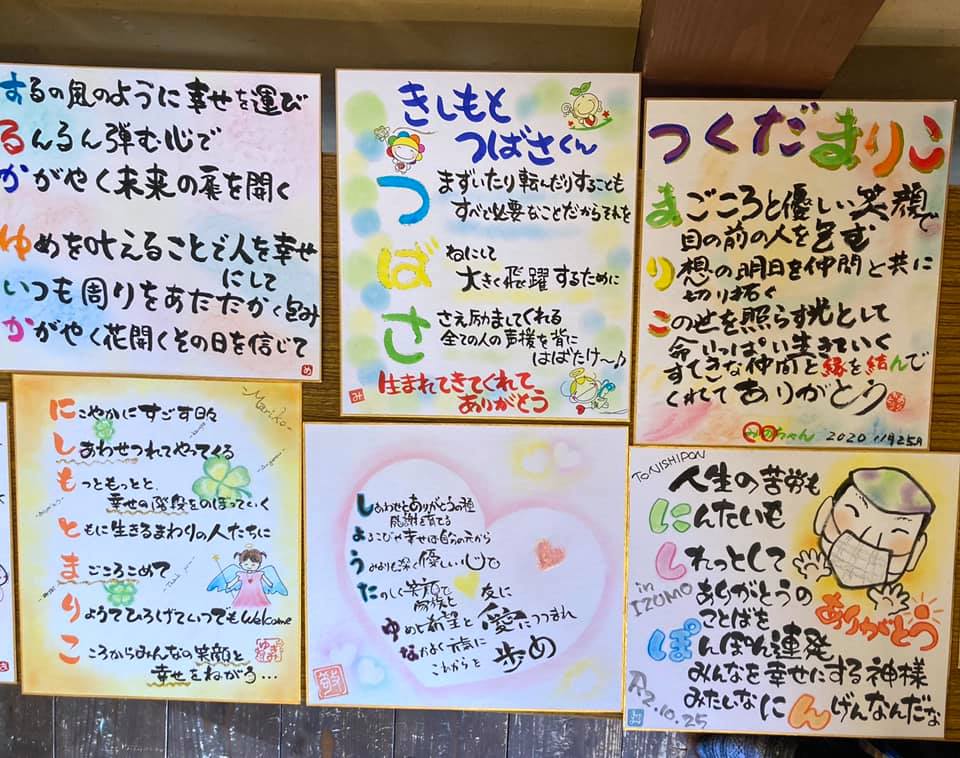 するの風のように幸せを運び
るんるん弾む心で
かがやく未来の扉を開く
ゆめを叶えることで人を幸せ
にして
いつも周りをあたたかく包み
かがやく花開くその日を信じて
め
きしもと
つばさくん
つまずいたり転んだりすることも
すべて必要なことだからそれを
ばねにして
大きく飛躍するために
ささえ励ましてくれる
全ての人の声援を背に
はばたけ〜♪
生まれてきてくれて
ありがとう
み
つくだまりこ
まごころと優しい笑顔で
目の前の人を包む
り想の明日を仲間と共に
切り拓く
この世を照らす光として
命いっぱい生きていく
すてきな仲間と縁を結んで
くれてありがとう
みゆちゃん 2020 11月25日
Mariko
にこやかにすごす日々
しあわせつれてやってくる
もっともっとと、
幸せの階段をのぼっていく
ともに生きるまわりの人たちに
まごころこめて
りょうてひろげていつでもWelcome
こころからみんなの笑顔と
幸せをねがう…
しあわせとありがとうの種
感謝を育てる
よろこびや幸せは自分の元から
うみよりも深く優しい心で
たのしく笑顔で
家族と 友に
ゆめと希望と愛につつまれ
なかよく元気に
これからを 歩め
敏
To NISHIPON
人生の苦労も
にんたいも
しれっとして
in IZUMO
ありがとうの
ことばを
ぽんぽん連発
みんなを幸せにする神様
みたいなにんげんなんだな
ありがとう
R2.10.25